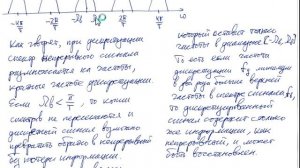 -4π/T -2π/T 2π/T 4π/T ω
Как говорят, при дискретизации
спектр непрерывного сигнала
размножается на частоты,
кратные частоте дискретизации.
Если Ωb < π/T, то копии
спектров не пересекаются и
дискретный сигнал возможно
превратить обратно в непрерывный
без потери информации.
который оставит только
частоты в диапазоне
То есть если частота
дискретизации
в два раза больше верхней
частоты в спектре сигнала
то дискретизированный
сигнал содержит столько
же информации, как
непрерывный, и может
быть восстановлен.